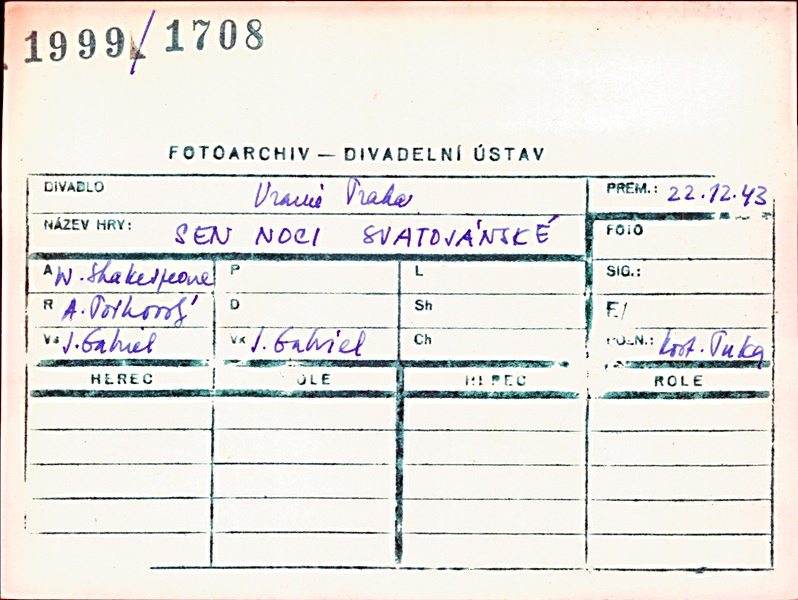 1999/1708
FOTOARCHIV — DIVADELNÍ ÚSTAV
DIVADLO Uranie Praha PREM.: 22.12.43
NÁZEV HRY: SEN NOCI SVATOJÁNSKÉ FOTO
A W. Shakespeare P L SIG.:
R A. D Sh F/
Vs J. Gabriel Vk J. Gabriel Ch POZN.: kost.
HEREC ROLE HEREC ROLE